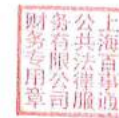 上海百事通
公共法律服
务有限公司
财务专用章